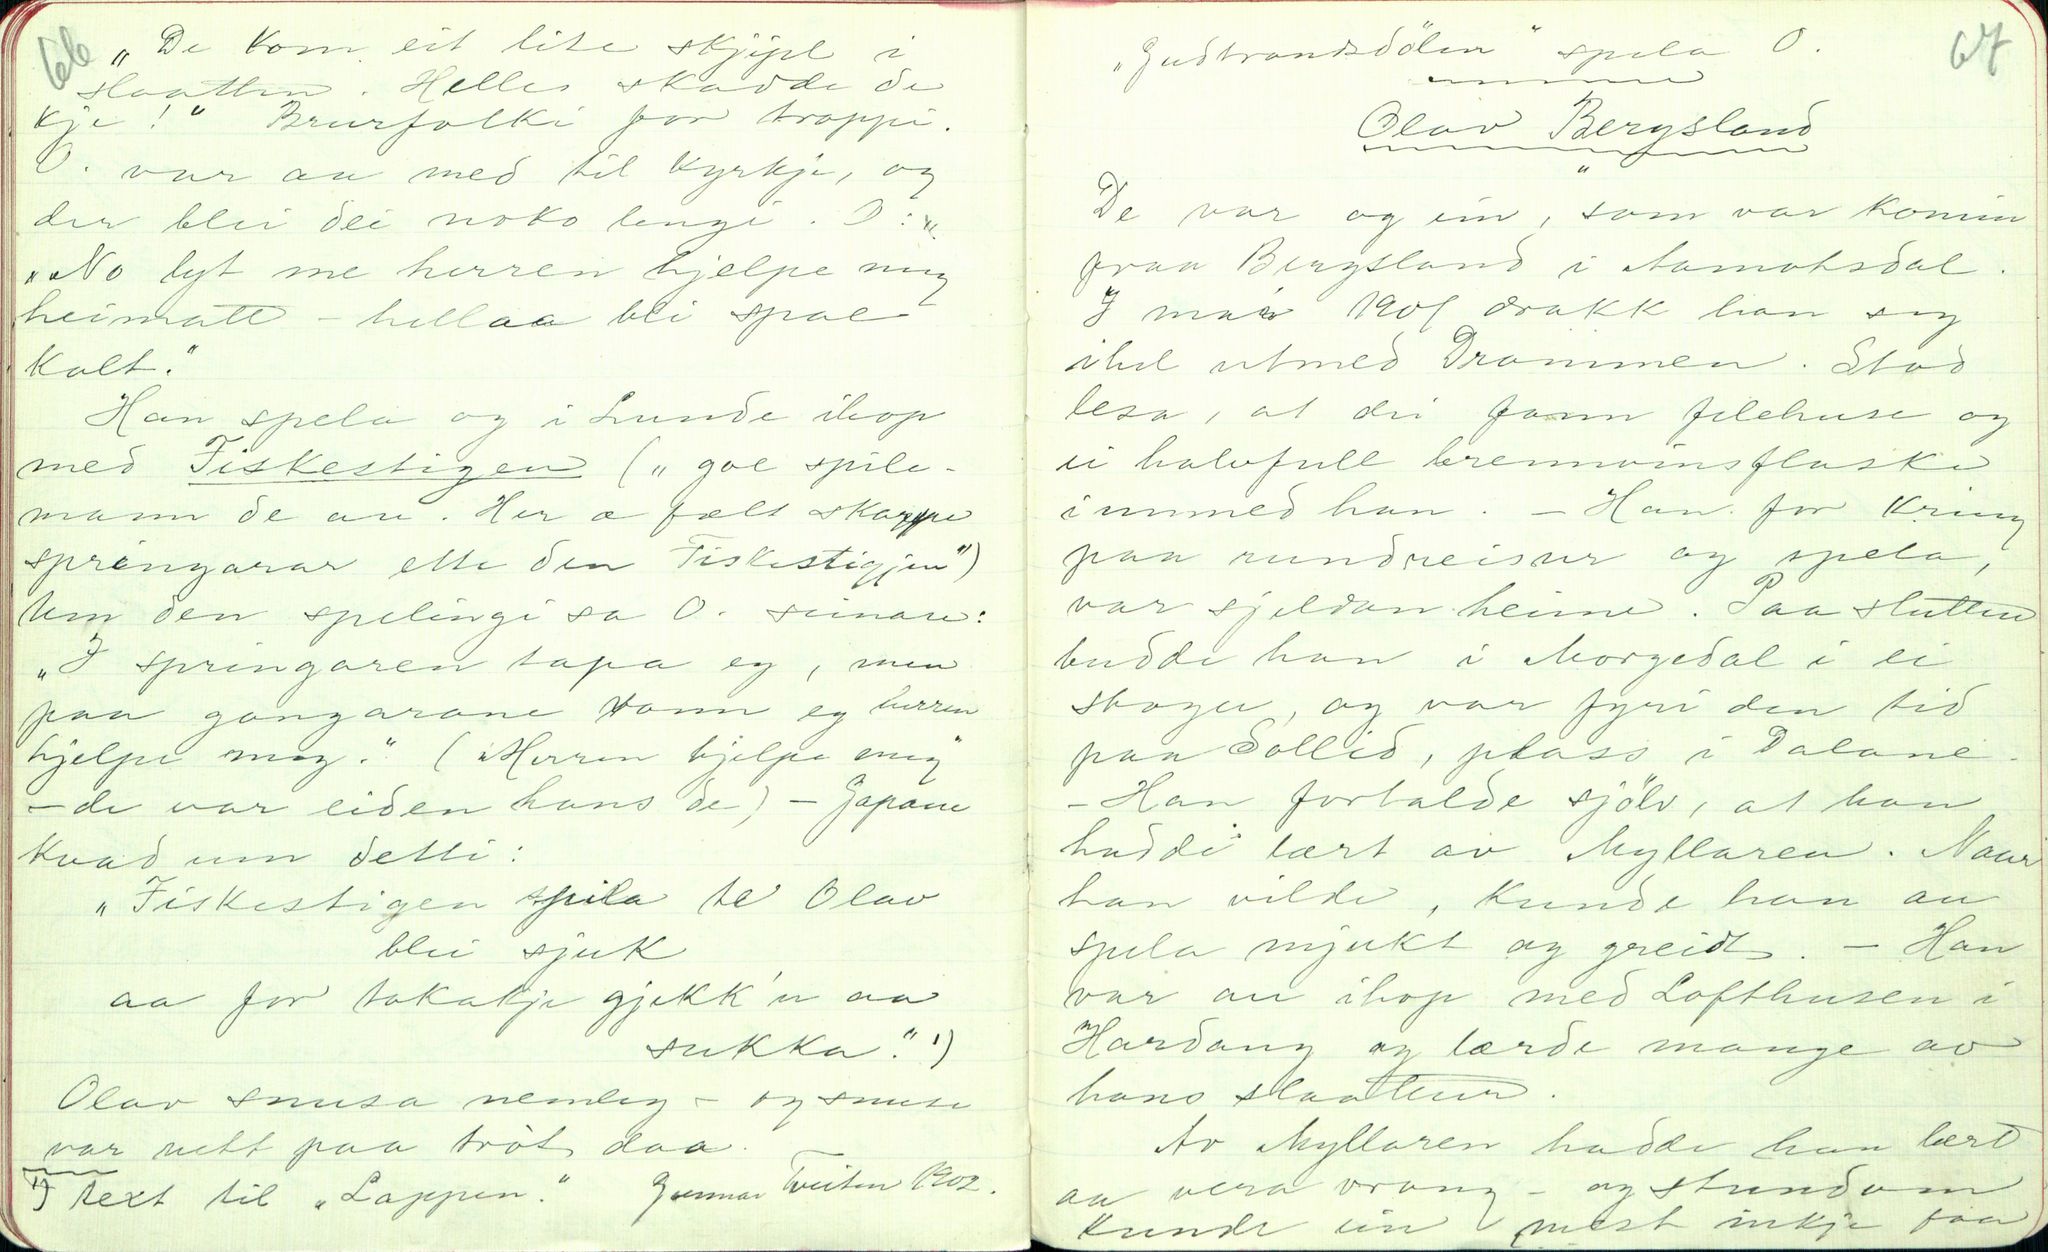 66
„De kom eit lite skjipl i
slaatten. Helles skadde de
kje!" Brurfolki for troppi.
O. var au med til kyrkje, og
der blei dei noko lengi. O:
„No lyt me herren hjelpe meg
heimatt – hellaa bli spae
kalt."
Han spela og i Lunde ihop
med Fiskestigen („goe spile-
mann de au. Her æ fælt skarpe
springarar ette den Fiskestigjen")
Um den spelingi sa O. seinare:
„I springaren tapa eg, men
paa gangarane vann eg herren
hjelpe meg." („Herren hjelpe meg"
– de var eiden hans de) – Gapane
kvad um detti:
„Fiskestigen spila te Olav
blei sjuk
aa for tokakje gjekk'n aa
sukka." 1)
Olav snusa nemleg – og snusen
var nett paa tròt daa.
1) text til „Lappen." Gunnar Tveiten 1902.
67
„Gudbrandsdölen" spela O.
Olav Bergsland
De var og ein, som var komin
fraa Bergsland i Aamotsdal.
I mai 1901 drakk han seg
ihel utmed Drammen. Stod
lesa, at dei fann felehuse og
ei halvfull brennvinsflaske
innmed han. – Han for kring
paa rundreisur og spela,
var sjeldan heime. Paa slutten
budde han i Morgedal i ei
stogu, og var fyri den tid
paa Sollid, plass i Dalane.
– Han fortalde sjölv, at han
hadde lært av Myllaren. Naar
han vilde, kunde han au
spela mjukt og greidt. – Han
var au ihop med Lofthusen i
Hardang og lærde mange av
hans slaattur.
Av Myllaren hadde han lært
aa vera vrang – og stundom
kunde ein mest inkje faa